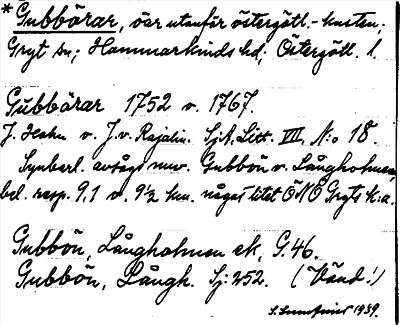 * Gubbörar, öar utanför östergötl.-kusten;
Gryt sn; Hammarkinds hd; Östergötl. l.
Gubbörar 1752 o. 1767.
J. Hahn o. J. v. Rajalin. SjA, Litt. VIII, N:o 18.
Synberl. avsågs nuv. Gubbön o. Långholmen,
bel. resp. 9,1 o. 9½ km. något litet ÖNÖ Gryts k:a.
Gubbön, Långholmen ek, G. 46.
Gubbön, Långh. Sj: 252. (Vänd!)
1939.